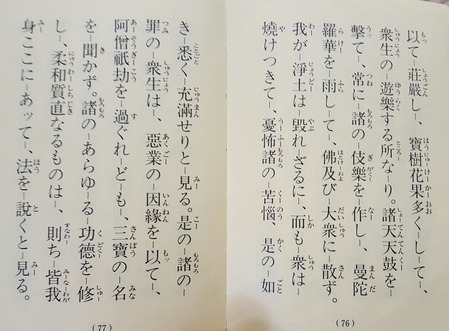 以て─莊嚴し─、寶樹花果多く─して─、
衆生の─遊樂する所な─り─。諸天天鼓を─
擊て─、常に─諸の─伎樂を─作し─、曼陀
羅華を─雨して─、佛及び─大衆に─散ず。
我が─淨土は─毀れ─ざるに─、而も─衆は─
燒けつきて─、憂怖諸の─苦惱、是の─如
(76)
き─悉く─充滿せりと─見る。是の─諸の─
罪の─衆生は─、惡業の─因緣を─以て─、
阿僧祇劫を─過ぐれ─ど─も─、三寶の─名
を─聞かず。諸の─あらゆる─功德を─修
し─、柔和質直なるもの─は─、則ち─皆我
身ここに─あって─、法を─說くと─見る。
(77)